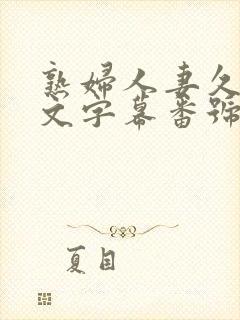 熟婦人妻久
文字幕番號
夏目